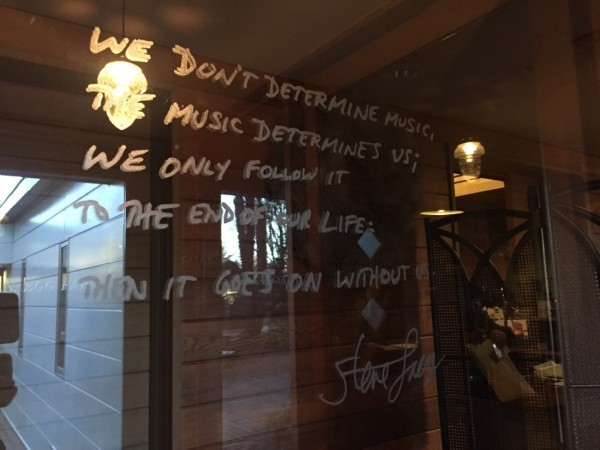 WE DON'T DETERMINE MUSIC,
THE MUSIC DETERMINES US;
WE ONLY FOLLOW IT
TO THE END OF OUR LIFE:
THEN IT GOES ON WITHOUT US.
Steve